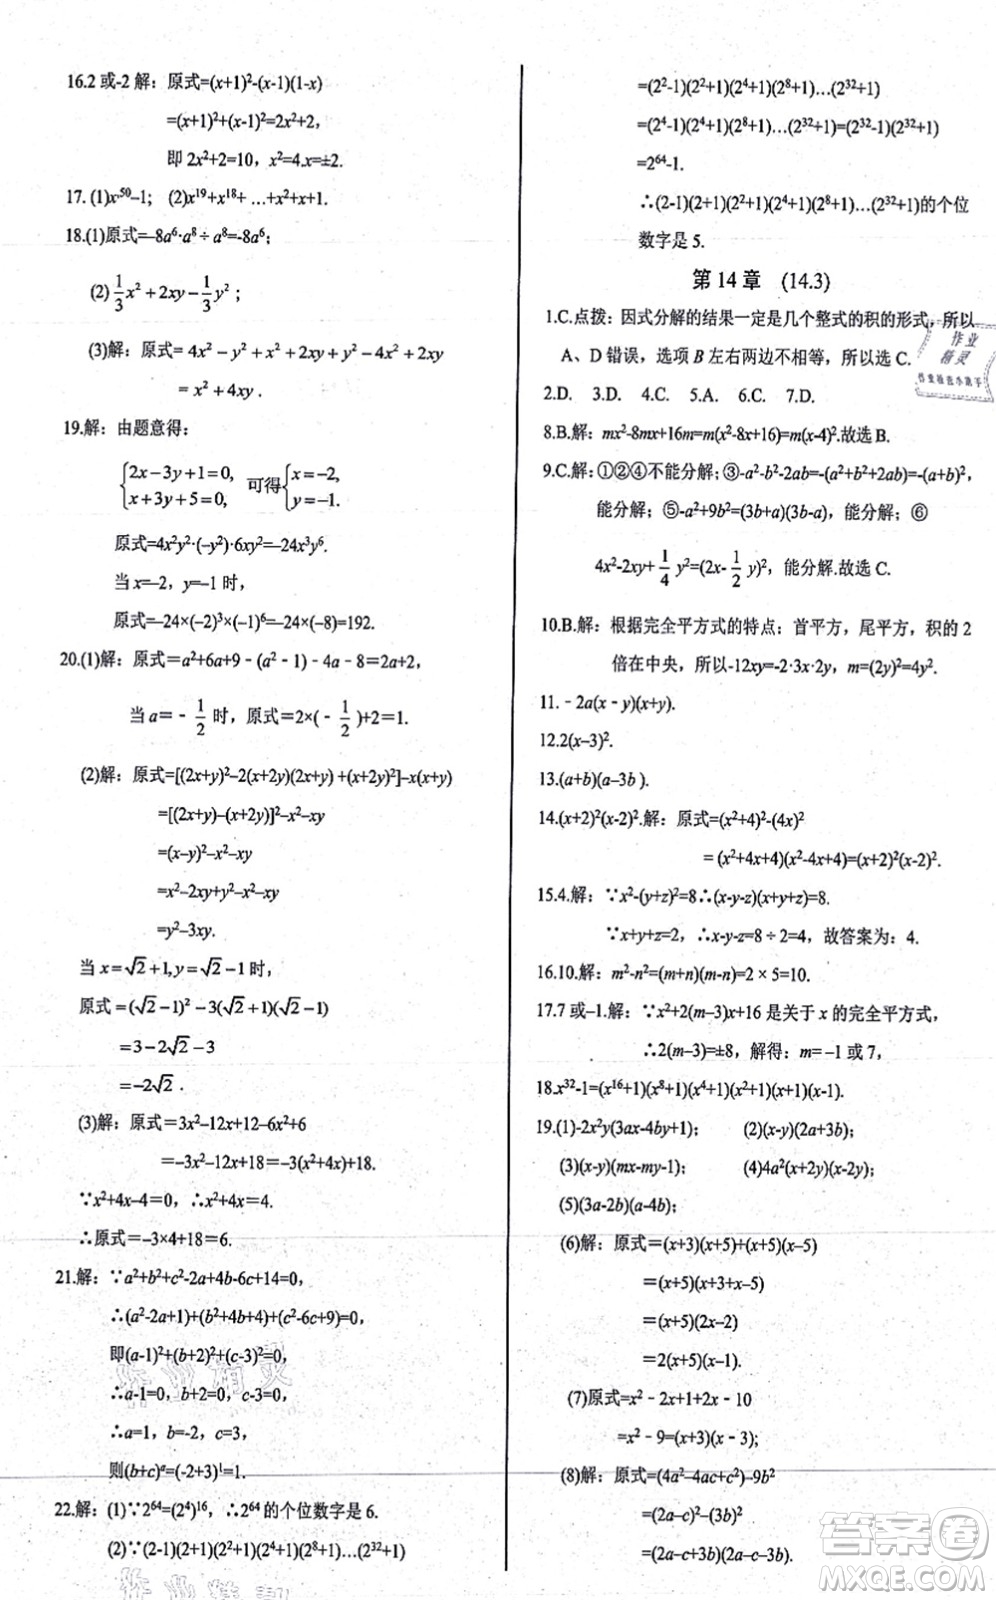 16.2 或-2 解：原式=(x+1)²-(x-1)(1-x)
=(x+1)²+(x-1)²=2x²+2，
即 2x²+2=10，x²=4.x=±2.
17. (1)x⁵⁰–1； (2)x¹⁹+x¹⁸+ …+x²+x+1.
18.(1)原式=–8a⁶·a⁸÷a⁸=-8a⁶；
(2) 1/3 x² + 2xy – 1/3 y²；
(3)解：原式= 4x² – y² + x² + 2xy + y² – 4x² + 2xy
= x² + 4xy .
19.解：由题意得：
{2x – 3y + 1 = 0, x + 3y + 5 = 0, 可得 {x = –2, y = –1.
原式=4x²y²·(–y²)·6xy²=–24x³y⁶.
当 x=–2，y=–1 时，
原式=–24×(–2)³×(–1)⁶=–24×(–8)=192.
20.(1)解：原式＝a²+6a+9﹣(a²﹣1)﹣4a﹣8＝2a+2，
当 a＝﹣1/2 时，原式＝2×(﹣1/2)+2＝1.
(2)解：原式=[(2x+y)²–2(x+2y)(2x+y) +(x+2y)²]–x(x+y)
=[(2x+y)–(x+2y)]²–x²–xy
=(x–y)²–x²–xy
=x²–2xy+y²–x²–xy
=y²–3xy.
当 x=√2+1,y=√2–1时，
原式=(√2–1)²–3(√2+1)(√2–1)
=3–2√2–3
=–2√2 .
(3)解：原式＝3x²–12x+12–6x²+6
＝–3x²–12x+18＝–3(x²+4x)+18.
∵x²+4x–4＝0，∴x²+4x＝4.
∴原式＝–3×4+18＝6.
21.解：∵a²+b²+c²-2a+4b-6c+14=0，
∴(a²-2a+1)+(b²+4b+4)+(c²-6c+9)=0，
即(a-1)²+(b+2)²+(c-3)²=0，
∴a-1=0，b+2=0，c-3=0，
∴a=1，b=-2，c=3，
则(b+c)ᵃ=(-2+3)¹=1.
22.解：(1)∵2⁶⁴=(2⁴)¹⁶，∴2⁶⁴的个位数字是 6.
(2)∵(2-1)(2+1)(2²+1)(2⁴+1)(2⁸+1)…(2³²+1)
=(2²-1)(2²+1)(2⁴+1)(2⁸+1)…(2³²+1)
=(2⁴-1)(2⁴+1)(2⁸+1)…(2³²+1)=(2³²-1)(2³²+1)
=2⁶⁴-1.
∴(2-1)(2+1)(2²+1)(2⁴+1)(2⁸+1)…(2³²+1)的个位
数字是 5.
第 14 章 (14.3)
1.C.点拨：因式分解的结果一定是几个整式的积的形式，所以
A、D 错误，选项 B 左右两边不相等，所以选 C.
2.D. 3.D. 4.C. 5.A. 6.C. 7.D.
8.B.解：mx²-8mx+16m=m(x²-8x+16)=m(x-4)².故选 B.
9.C.解：①②④不能分解；③-a²-b²-2ab=-(a²+b²+2ab)=-(a+b)²，
能分解；⑤-a²+9b²=(3b+a)(3b-a)，能分解；⑥
4x²-2xy+1/4 y²=(2x-1/2 y)²，能分解.故选 C.
10.B.解：根据完全平方式的特点：首平方，尾平方，积的 2
倍在中央，所以-12xy=-2·3x·2y，m=(2y)²=4y².
11.﹣2a(x﹣y)(x+y).
12.2(x–3)².
13.(a+b)(a–3b ).
14.(x+2)²(x-2)².解：原式=(x²+4)²-(4x)²
= (x²+4x+4)(x²-4x+4)=(x+2)²(x-2)².
15.4.解：∵x²-(y+z)²=8∴(x-y-z)(x+y+z)=8.
∵x+y+z=2，∴x-y-z=8÷2=4，故答案为：4.
16.10.解：m²-n²=(m+n)(m-n)=2×5=10.
17.7 或–1.解：∵x²+2(m–3)x+16 是关于 x 的完全平方式，
∴2(m–3)=±8，解得：m= –1 或 7，
18.x³²-1=(x¹⁶+1)(x⁸+1)(x⁴+1)(x²+1)(x+1)(x-1).
19.(1)-2x²y(3ax-4by+1)； (2)(x-y)(2a+3b)；
(3)(x-y)(mx-my-1)； (4)4a²(x+2y)(x-2y)；
(5)(3a-2b)(a-4b)；
(6)解：原式＝(x+3)(x+5)+(x+5)(x-5)
＝(x+5)(x+3+x–5)
＝(x+5)(2x–2)
＝2(x+5)(x–1).
(7)原式=x²﹣2x+1+2x﹣10
=x²﹣9=(x+3)(x﹣3);
(8)解：原式=(4a²–4ac+c²)–9b²
=(2a–c)²–(3b)²
=(2a–c+3b)(2a–c–3b).
作业
精灵
作业精灵
答案圈
MXQE.COM